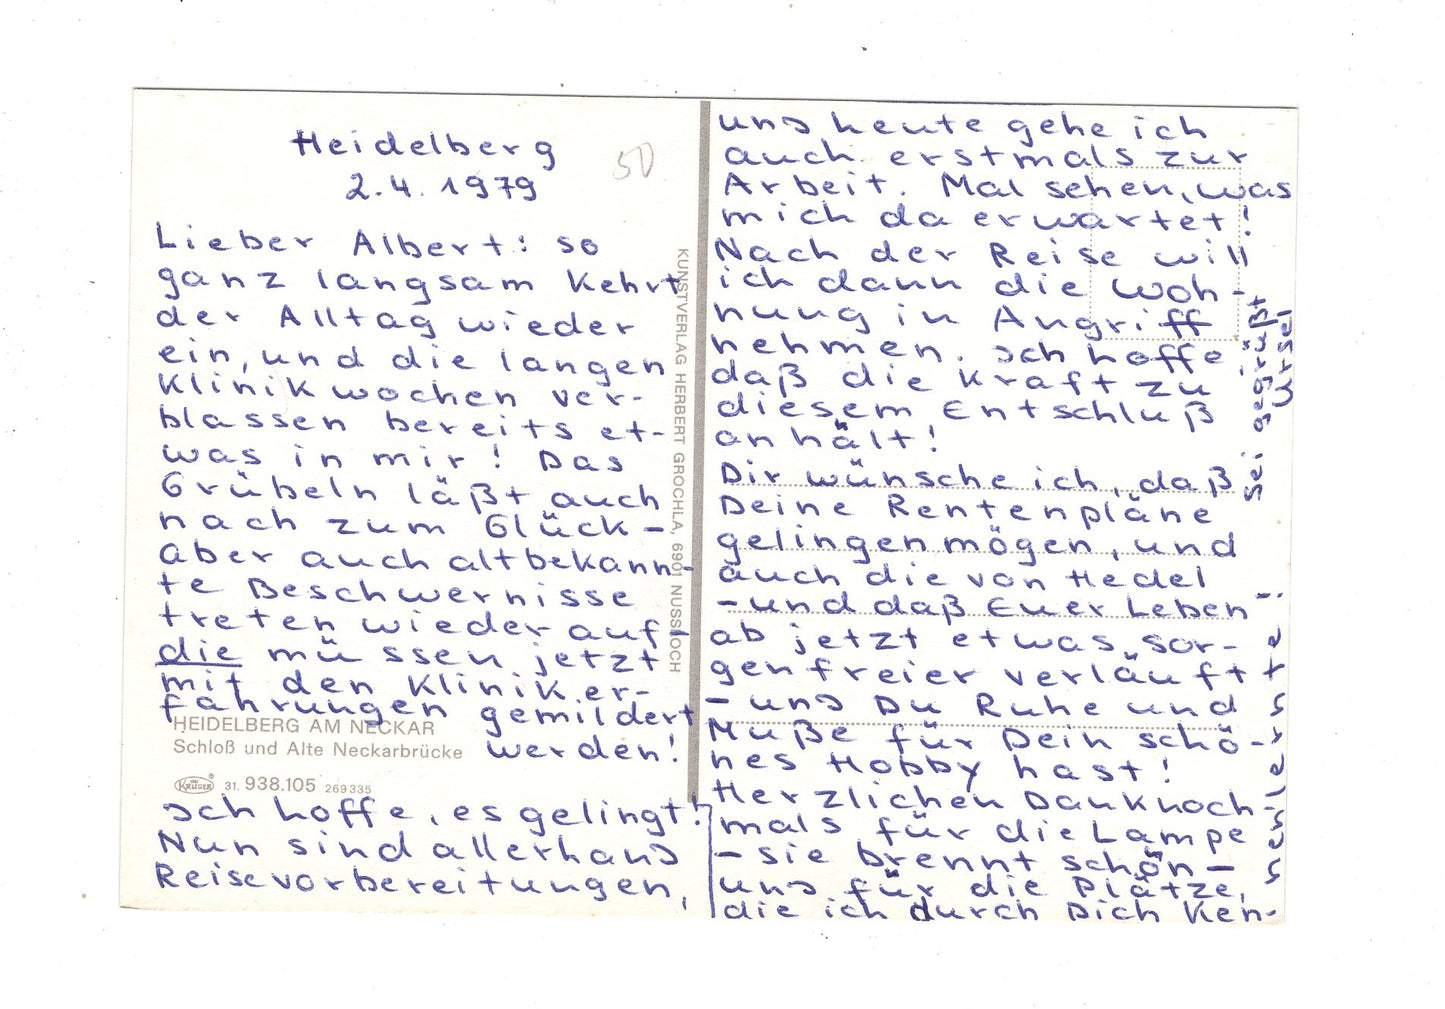 Heidelberg
2.4.1979
50
Lieber Albert: so
ganz langsam kehrt
der Alltag wieder
ein, und die langen
Klinikwochen ver-
blassen bereits et-
was in mir! Das
Grübeln läßt auch
nach zum Glück -
aber auch altbekann-
te Beschwernisse
treten wieder auf!
die müssen jetzt
mit den Kliniker-
fahrungen gemildert
werden!
HEIDELBERG AM NECKAR
Schloß und Alte Neckarbrücke
KRÜGER 31. 938.105 269335
Ich hoffe, es gelingt!
Nun sind allerhand
Reisevorbereitungen,
KUNSTVERLAG HERBERT GROCHLA, 6901 NUSSLOCH
und heute gehe ich
auch erstmals zur
Arbeit. Mal sehen, was
mich da erwartet!
Nach der Reise will
ich dann die Woh-
nung in Angriff
nehmen. Ich hoffe
daß die Kraft zu
diesem Entschluß
anhält!
Dir wünsche ich, daß
Deine Rentenpläne
gelingen mögen, und
auch die von Hedel
- und daß Euer Leben
ab jetzt etwas „sor-
genfreier verläuft"
- und Du Ruhe und
Muße für Dein schö-
nes Hobby hast!
Herzlichen Dank noch-
mals für die Lampe
- sie brennt schön -
und für die Plätze,
die ich durch Dich ken-
nenlernte!
Sei gegrüßt
Ursel